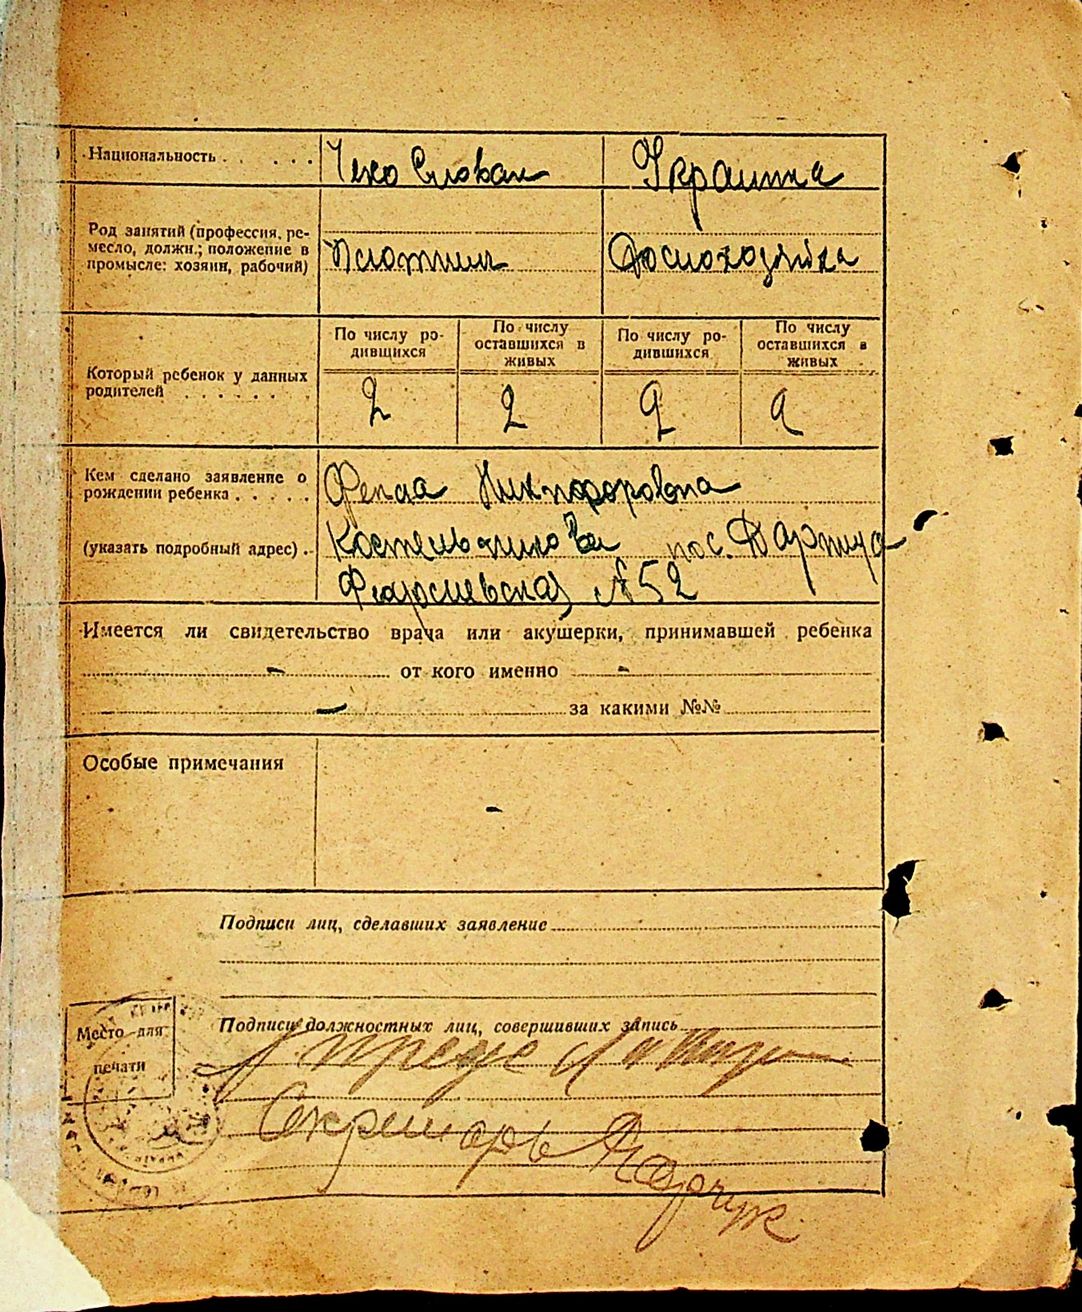 Национальность . . . . . . Чехо Словак Украинка
Род занятий (профессия, ре-
месло, должн.; положение в
промысле: хозяин, рабочий) Плотник Домохозяйка
По числу ро-
дивщихся
По числу
оставшихся в
живых
По числу ро-
дившихся
По числу
оставшихся в
живых
Который ребенок у данных
родителей . . . . . . . 2 2 2 2
Кем сделано заявление о
рождении ребенка . . . . . Никифоровна
(указать подробный адрес) . . Костельникова пос. Дарница
№ 52
Имеется ли свидетельство врача или акушерки, принимавшей ребенка
- от кого именно -
- за какими №№
Особые примечания -
Подписи лиц, сделавших заявление
Место для
печати
Подписи должностных лиц, совершивших запись
Секретарь